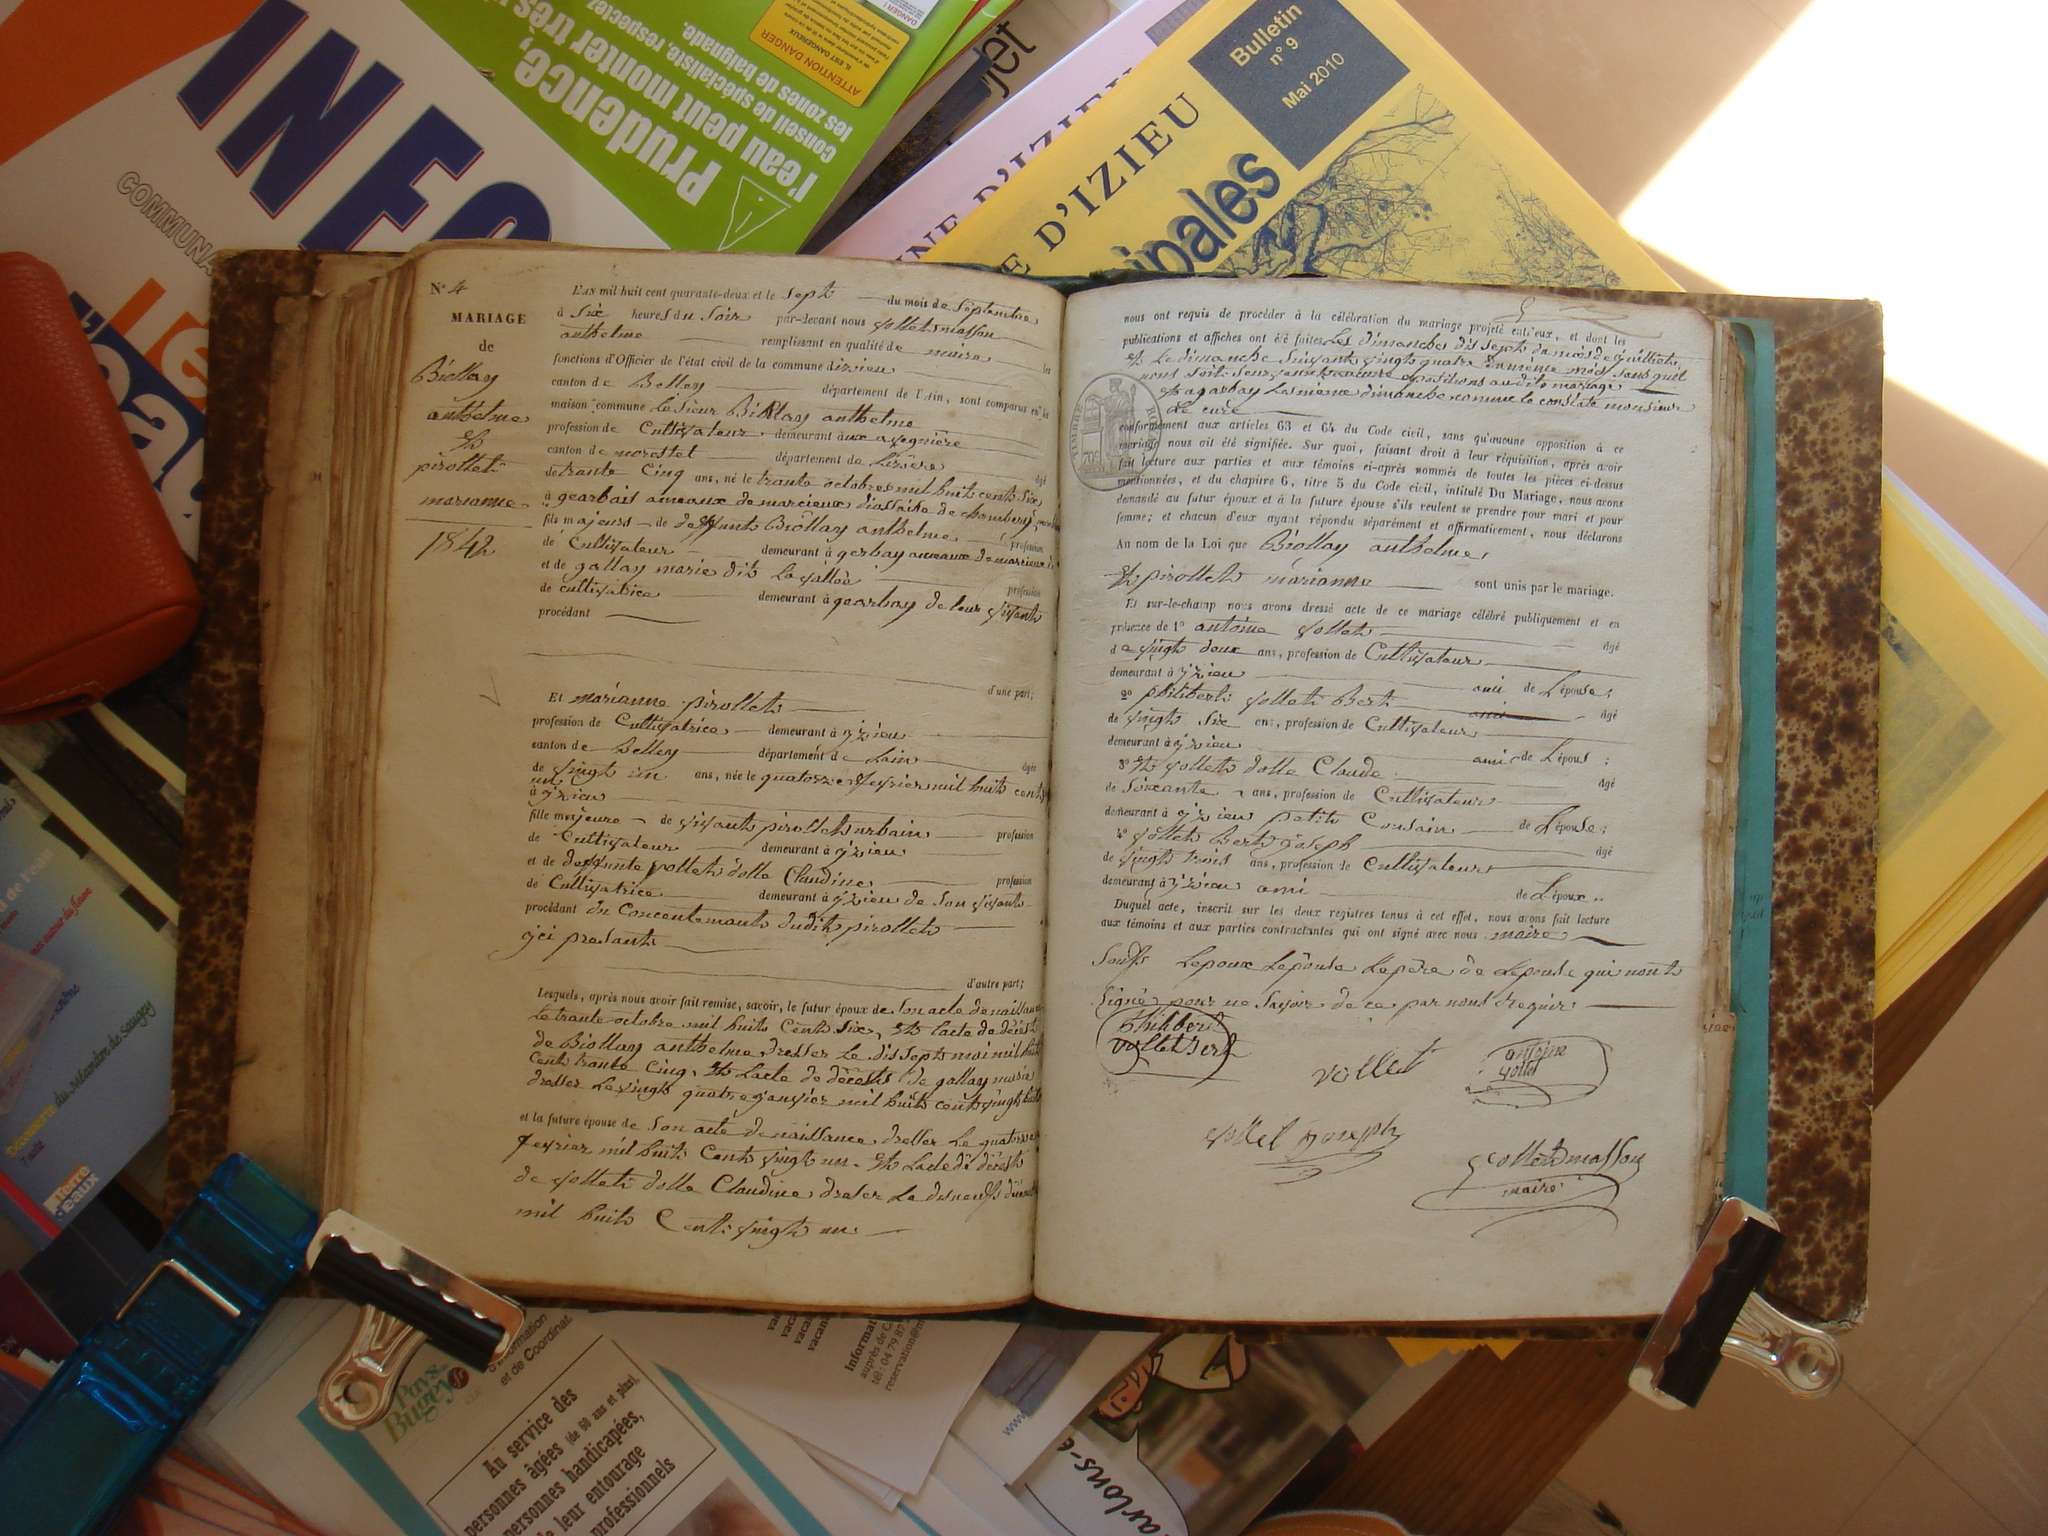 INFO
COMMUNA
Prudence,
l'eau peut monter très
conseil de spécialiste, respectez
les zones de baignade.
ATTENTION DANGER
DANGER!
IL EST DANGEREUX
jet
NE D'IZIEU
E D'IZIEU
ipales
Bulletin
n° 9
Mai 2010
N° 4
MARIAGE
de
Biollay
anthelme
Et
pirollet
marianne
1842
L'AN mil huit cent quarante-deux et le sept du mois de Septembre
à Six heures du Soir par-devant nous Vollet massou
anthelme remplissant en qualité de maire les
fonctions d'Officier de l'état civil de la commune dizieu
canton de Belley département de l'Ain, sont comparus en la
maison commune le Sieur Biollay anthelme
profession de Cultivateur demeurant à aux avenière
canton de morestel département de lizere âgé
de trante Cinq ans, né le trante octobre mil huit cent Six
à gearbais ameaux de marcieux de chambery
fils majeurs de deffunt Biollay anthelme profession
de Cultivateur demeurant à gerbay ameaux de marcieux
et de gallay marie dit la profession
de cultivatrice demeurant à gearbay de leur vivant
procédant
d'une part;
Et marianne pirollet
profession de Cultivatrice demeurant à yzieu
canton de Belley département de Lain âgée
de vingt un ans, née le quatorze fevrier mil huit cent
à yzieu
fille majeure de vivant pirollet urbain profession
de Cultivateur demeurant à yzieu
et de deffunte vollet dolle Claudine profession
de Cultivatrice demeurant à yzieu de Son vivant
procédant du Concentemant dudit pirollet
yci presant
d'autre part;
Lesquels, après nous avoir fait remise, savoir, le futur époux de Son acte de naissance
le trante octobre mil huit Cent Six, Et lacte de décest
de Biollay anthelme dresser le dis Sept mai mil huit
cent trante Cinq, Et lacte de décest de gallay marie
dresser le vingt quatre janvier mil huit cent vingt
et la future épouse de Son acte de naissance dresser le quatorze
fevrier mil huit Cent vingt un Et lacte de décest
de vollet dolle Claudine dreser le disneuf
mil huit Cent vingt un
nous ont requis de procéder à la célébration du mariage projeté entr'eux, et dont les
publications et affiches ont été faites Les dimanche dis Sept du mois de juillet
et le dimanche Suivant vingt quatre du même mois Sans quil
nous soit opositions audit mariage
Et a garbay les meme dimanche comme le constate monsieur
Le curé
conformément aux articles 63 et 64 du Code civil, sans qu'aucune opposition à ce
mariage nous ait été signifiée. Sur quoi, faisant droit à leur réquisition, après avoir
fait lecture aux parties et aux témoins ci-après nommés de toutes les pièces ci-dessus
mentionnées, et du chapitre 6, titre 5 du Code civil, intitulé Du Mariage, nous avons
demandé au futur époux et à la future épouse s'ils veulent se prendre pour mari et pour
femme; et chacun d'eux ayant répondu séparément et affirmativement, nous déclarons
Au nom de la Loi que Biollay anthelme,
Et pirollet marianne sont unis par le mariage.
Et sur-le-champ nous avons dressé acte de ce mariage célébré publiquement et en
présence de 1° antoine vollet âgé
de vingt deux ans, profession de Cultivateur
demeurant à yzieu ami de Lépouse;
2° philibert vollet Bert âgé
de vingt Six ans, profession de Cultivateur
demeurant à yzieu ami de Lépous;
3° Et vollet dolle Claude âgé
de Soixante ans, profession de Cultivateur
demeurant à yzieu petit Cousain de Lépouse;
4° vollet Bert joseph âgé
de vingt trois ans, profession de Cultivateur
demeurant à yzieu ami de Lépoux
Duquel acte, inscrit sur les deux registres tenus à cet effet, nous avons fait lecture
aux témoins et aux parties contractantes qui ont signé avec nous maire
Souf Lepoux Lepouse Lepere de Lepouse qui nont
Signé pour ne Savoir de ce par nous requis
Philibert
vollet Bert
vollet
antoine
vollet
vollet joseph
vollet massou
maire
TIMBRE ROYAL
Pays
Bugey
d'Information
et de Coordinat
Au service des
personnes âgées (de 60 ans et plus),
personnes handicapées,
de leur entourage
professionnels
Informat
auprès de C
tél: 04 79 87
reservation@m
www.
arlons-e
Découverte du sélambre de saugey
Terre
d'eaux